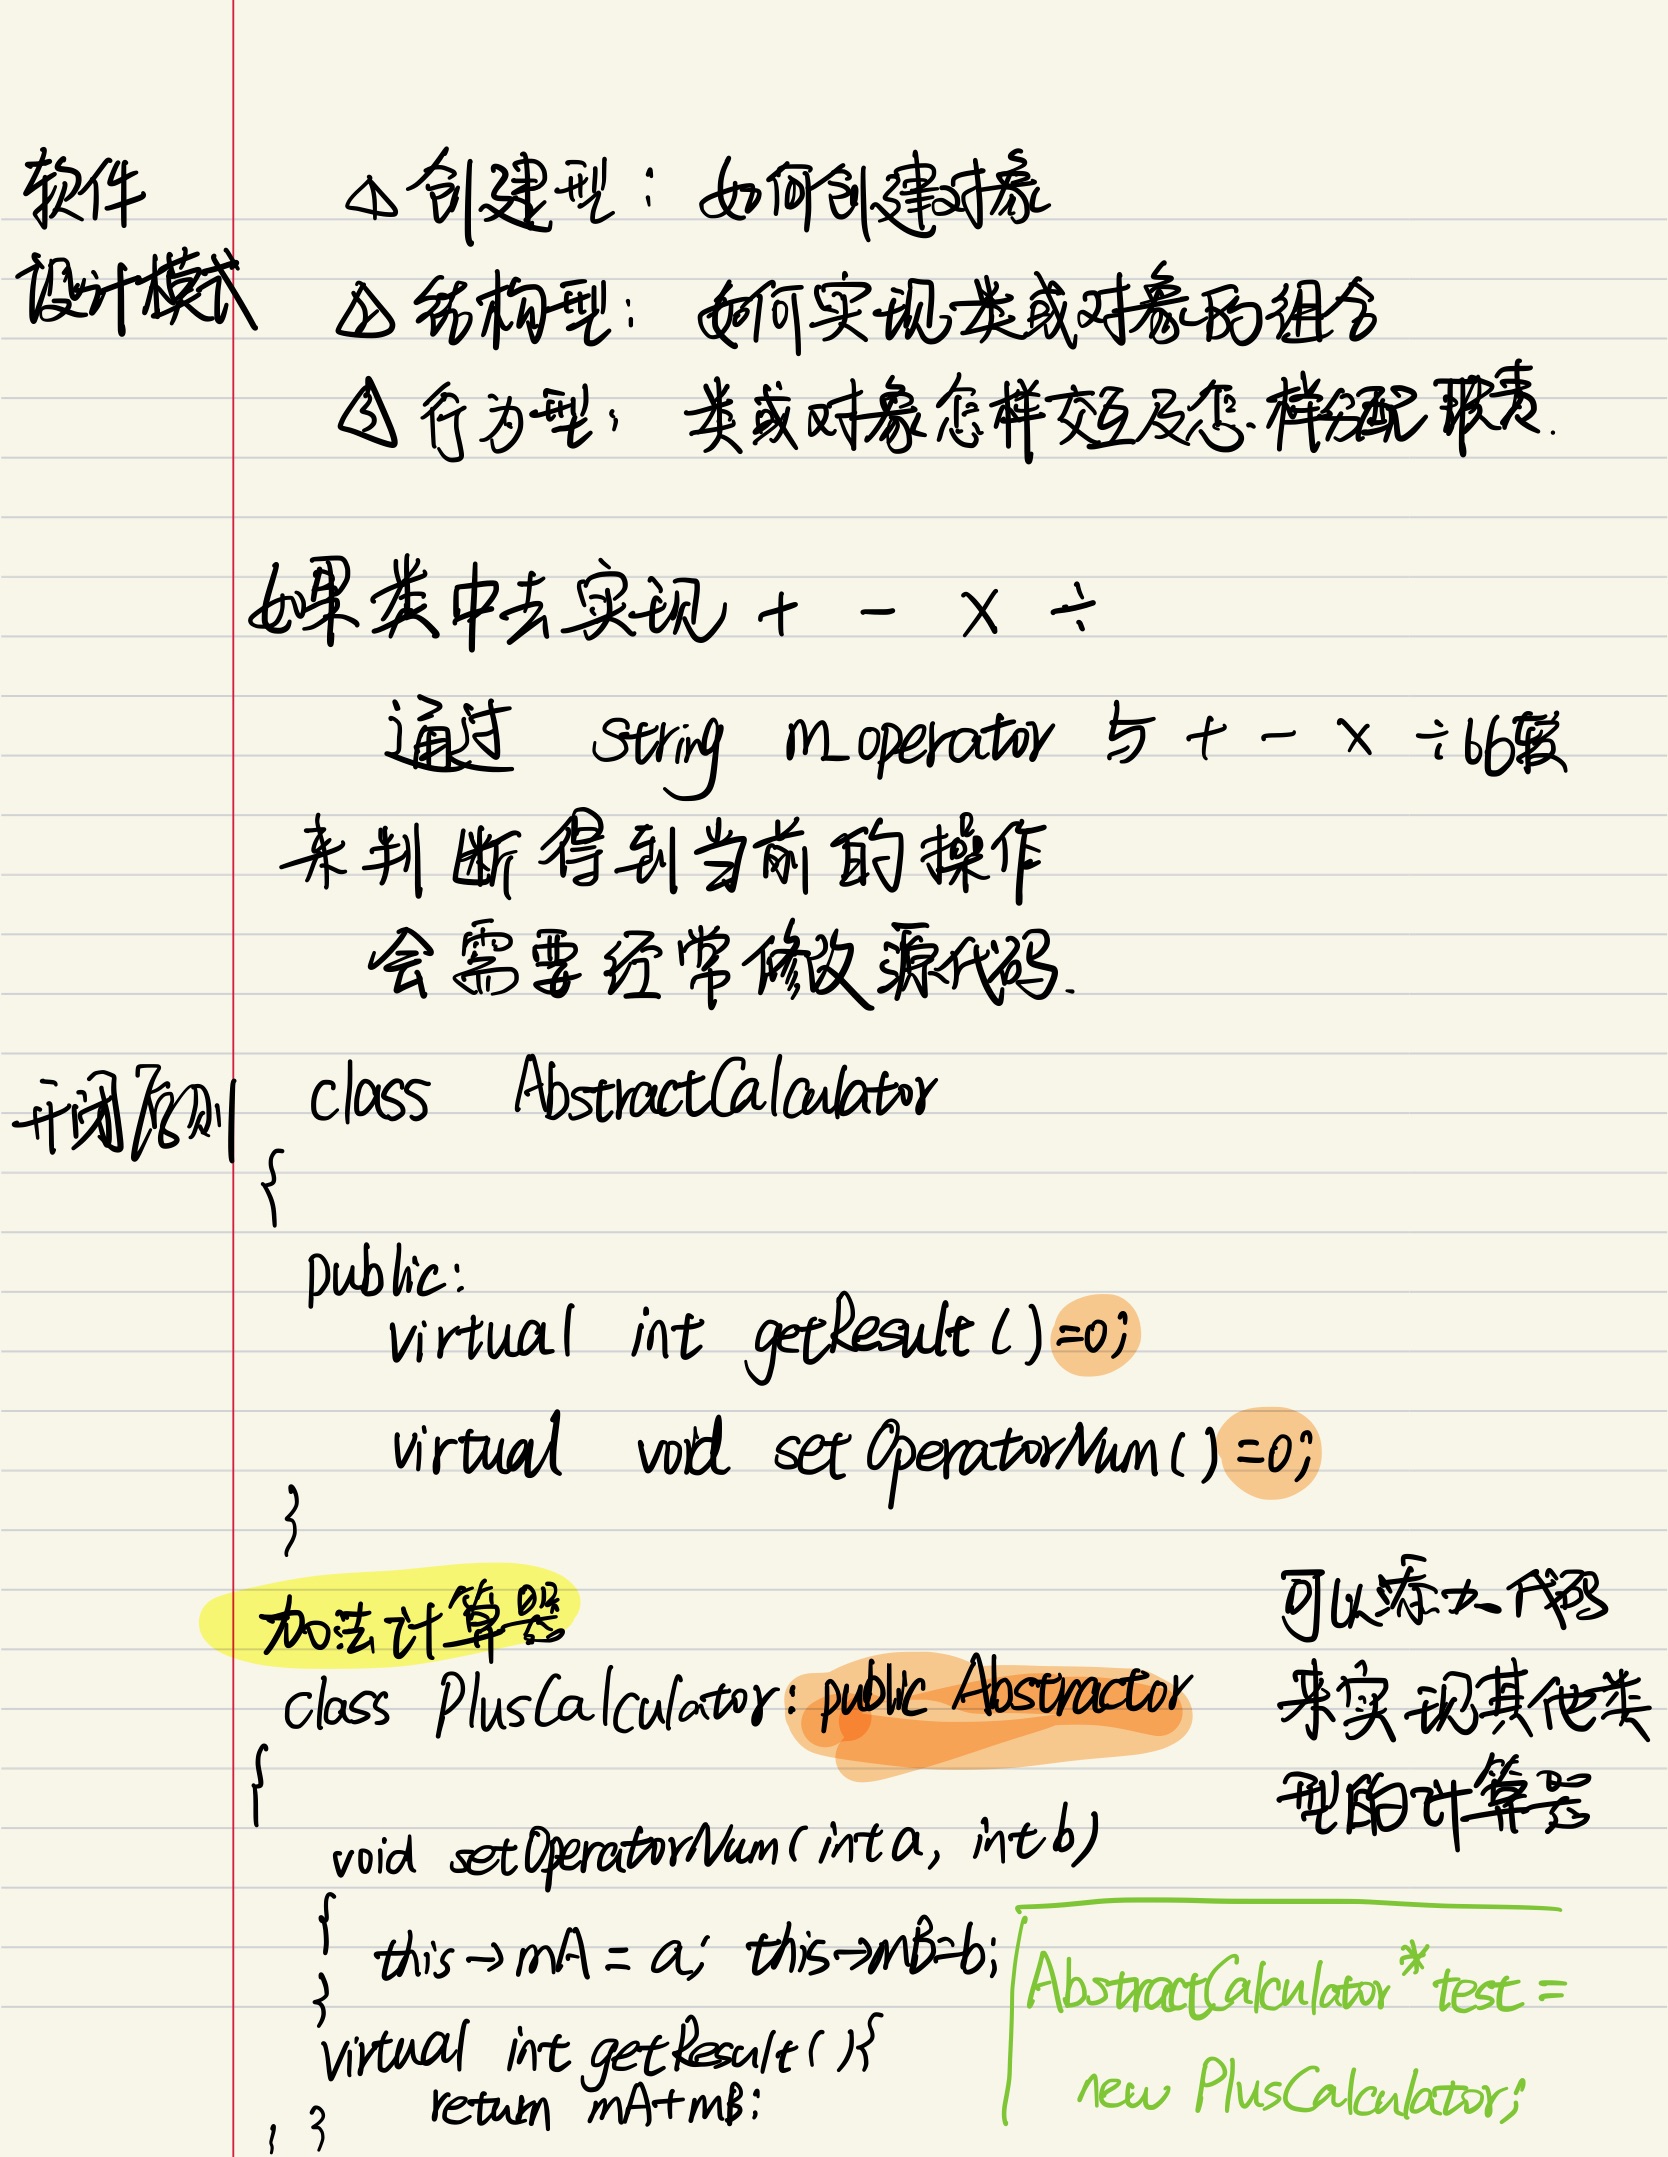 软件
设计模式
① 创建型: 如何创建对象
② 结构型: 如何实现类或对象的组合
③ 行为型: 类或对象怎样交互及怎样分配职责.
如果类中去实现 + - × ÷
通过 string m_operator 与 + - × ÷ 比较
来判断得到当前的操作
会需要经常修改源代码.
开闭原则
class AbstractCalculator
{
public:
virtual int getResult()=0;
virtual void setOperatorNum()=0;
}
加法计算器
class PlusCalculator: public Abstractor
{
void setOperatorNum(int a, int b)
{
this→mA = a; this→mB=b;
}
virtual int getResult(){
return mA+mB;
}
}
可以添加代码
来实现其他类
型的计算器
AbstractCalculator* test =
new PlusCalculator;